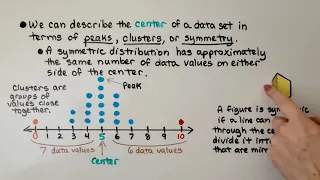 • We can describe the center of a data set in
terms of peaks, clusters, or symmetry.
• A symmetric distribution has approximately
the same number of data values on either
side of the center.
Clusters are
groups of
values close
together.
Peak
0 1 2 3 4 5 6 7 8 9 10
7 data values
6 data values
Center
A figure is
if a line can
through the
divide it
that are